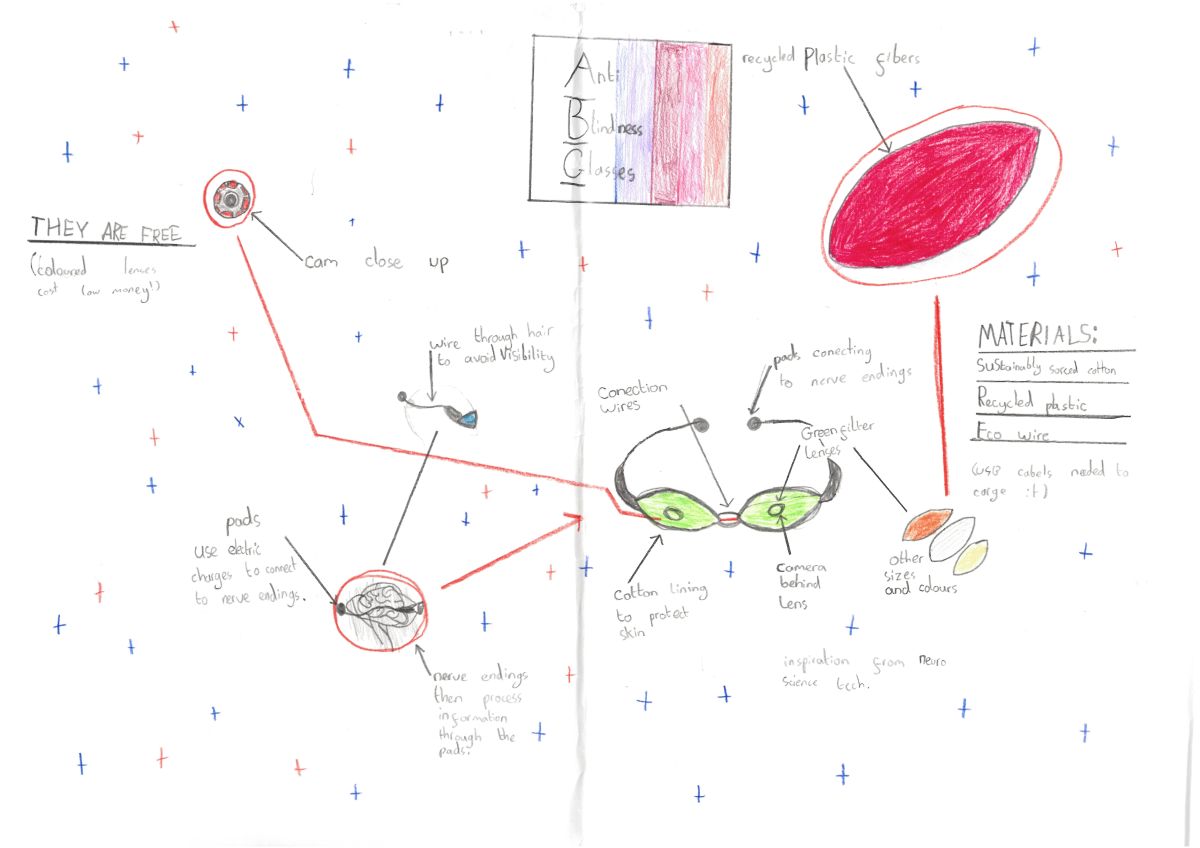 Anti
Blindness
Glasses
recycled Plastic fibers
THEY ARE FREE
(coloured lenses
cost low money!)
cam close up
wire through hair
to avoid visibility
Conection
wires
pads conecting
to nerve endings
Green filter
Lenses
MATERIALS:
Sustainably sorced cotton
Recycled plastic
Eco wire
(USB cabels needed to
carge it)
pads
use electric
charges to connect
to nerve endings.
Cotton lining
to protect
skin
Camera
behind
Lens
other
sizes
and colours
nerve endings
then process
information
through the
pads.
inspiration from neuro
science tech.